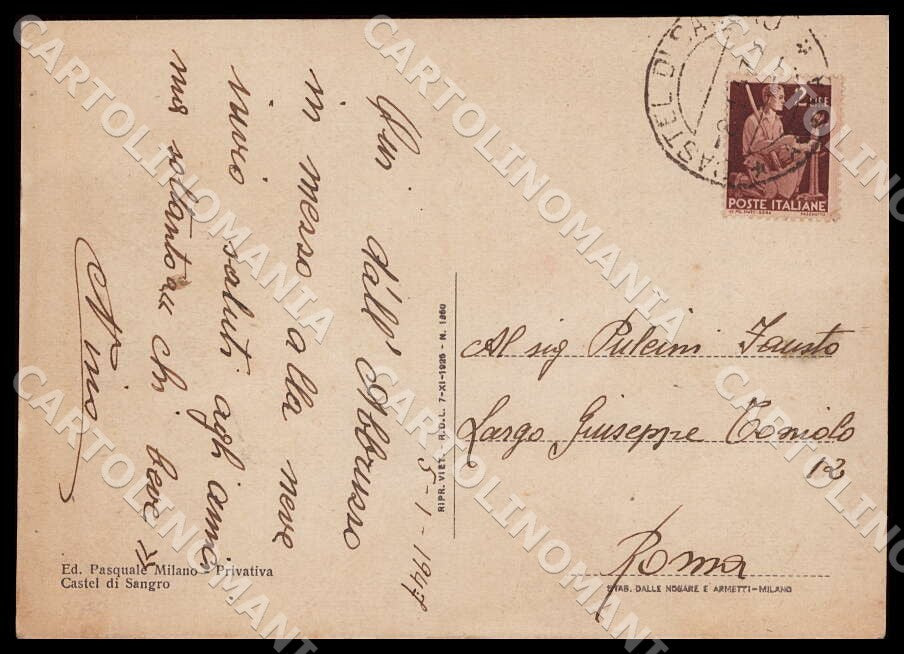 5-1-1947
Qui dall'Abbruzzo
in mezzo alla neve
invio saluti agli amici
ma soltanto a chi beve
Nino
Ed. Pasquale Milano - Privativa
Castel di Sangro
RIPR. VIET. - R.D.L. 7-XI-1925 - N. 1950
CASTEL DI SANGRO
2 LIRE
POSTE ITALIANE
Al sig Pulcini Fausto
Largo Giuseppe Toniolo
12
Roma
STAB. DALLE NOGARE E ARMETTI-MILANO
CARTOLINOMANIA